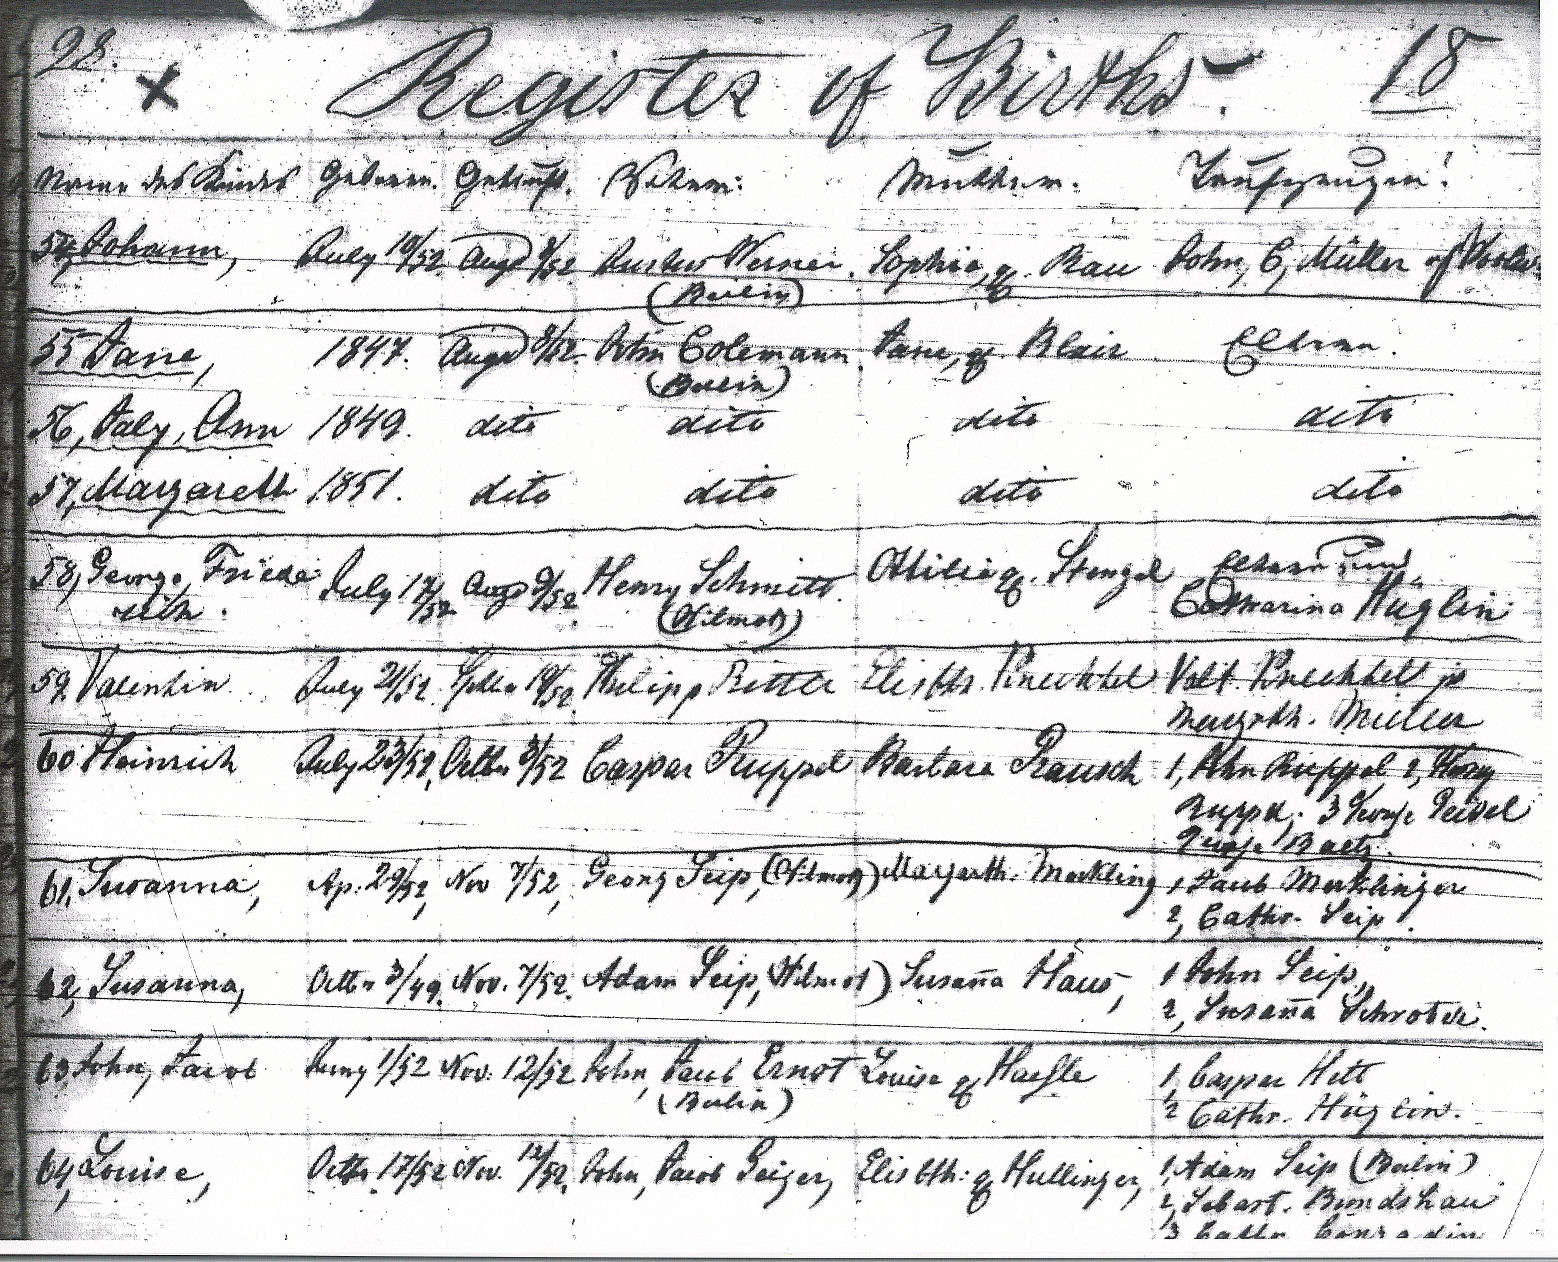 28. Register of Births. 18
Name des Kindes Geboren. Getauft. Väter: Mütter. Taufzeugen!
54, Johann, July 10/52. Aug 8/52 Gustav Werner, Sophia, g. Rau John, C, Müller of
(Berlin)
55 Jane, 1847. Aug 8/52. John Colemann, Jane, g. Blair Eltern.
(Berlin)
56, July, Ann 1849. dito dito dito dito
57, Margareth 1851. dito dito dito dito
58, George, Friede July 17/52 Aug 9/52 Henry Schmitt. Ottilia g. Stengel Eltern und
rich. (Wilmot) Catharina Hüglin
59, Valentin July 21/52. Septbr 19/52. Philipp Ritter Elisbth. Knechtel Valt. Knechtell jr
Margrth. Müller
60 Heinrich July 23/52, Octbr 3/52 Caspar Ruppel Barbara Rausch 1, John Ruppel 2, Henry
Ruppel, 3 George Geibel
George Baetz.
61, Susanna, Ap. 29/52, Nov 7/52, Georg Seip, (Wilmot) Margarth. Merkling 1 Jacob Merklinger
2, Cathr. Seip.
62, Susanna, Octbr 3/49. Nov. 7/52. Adam Seip, (Wilmot) Susaña Haus, 1 John Seip,
2, Susaña Schroter.
63, John, Jacob Juny 1/52 Nov. 12/52 John, Jacob Ernst Louise g Haefle 1, Caspar Hett
(Berlin) 2 Cathr. Hüglin.
64, Louise, Octbr 17/52 Nov. 12/52, John, Jacob Geiger, Elisbth: g Hullinger, 1, Adam Seip (Berlin)
2, Sebast. Bundshau
3 Cathr Conradin